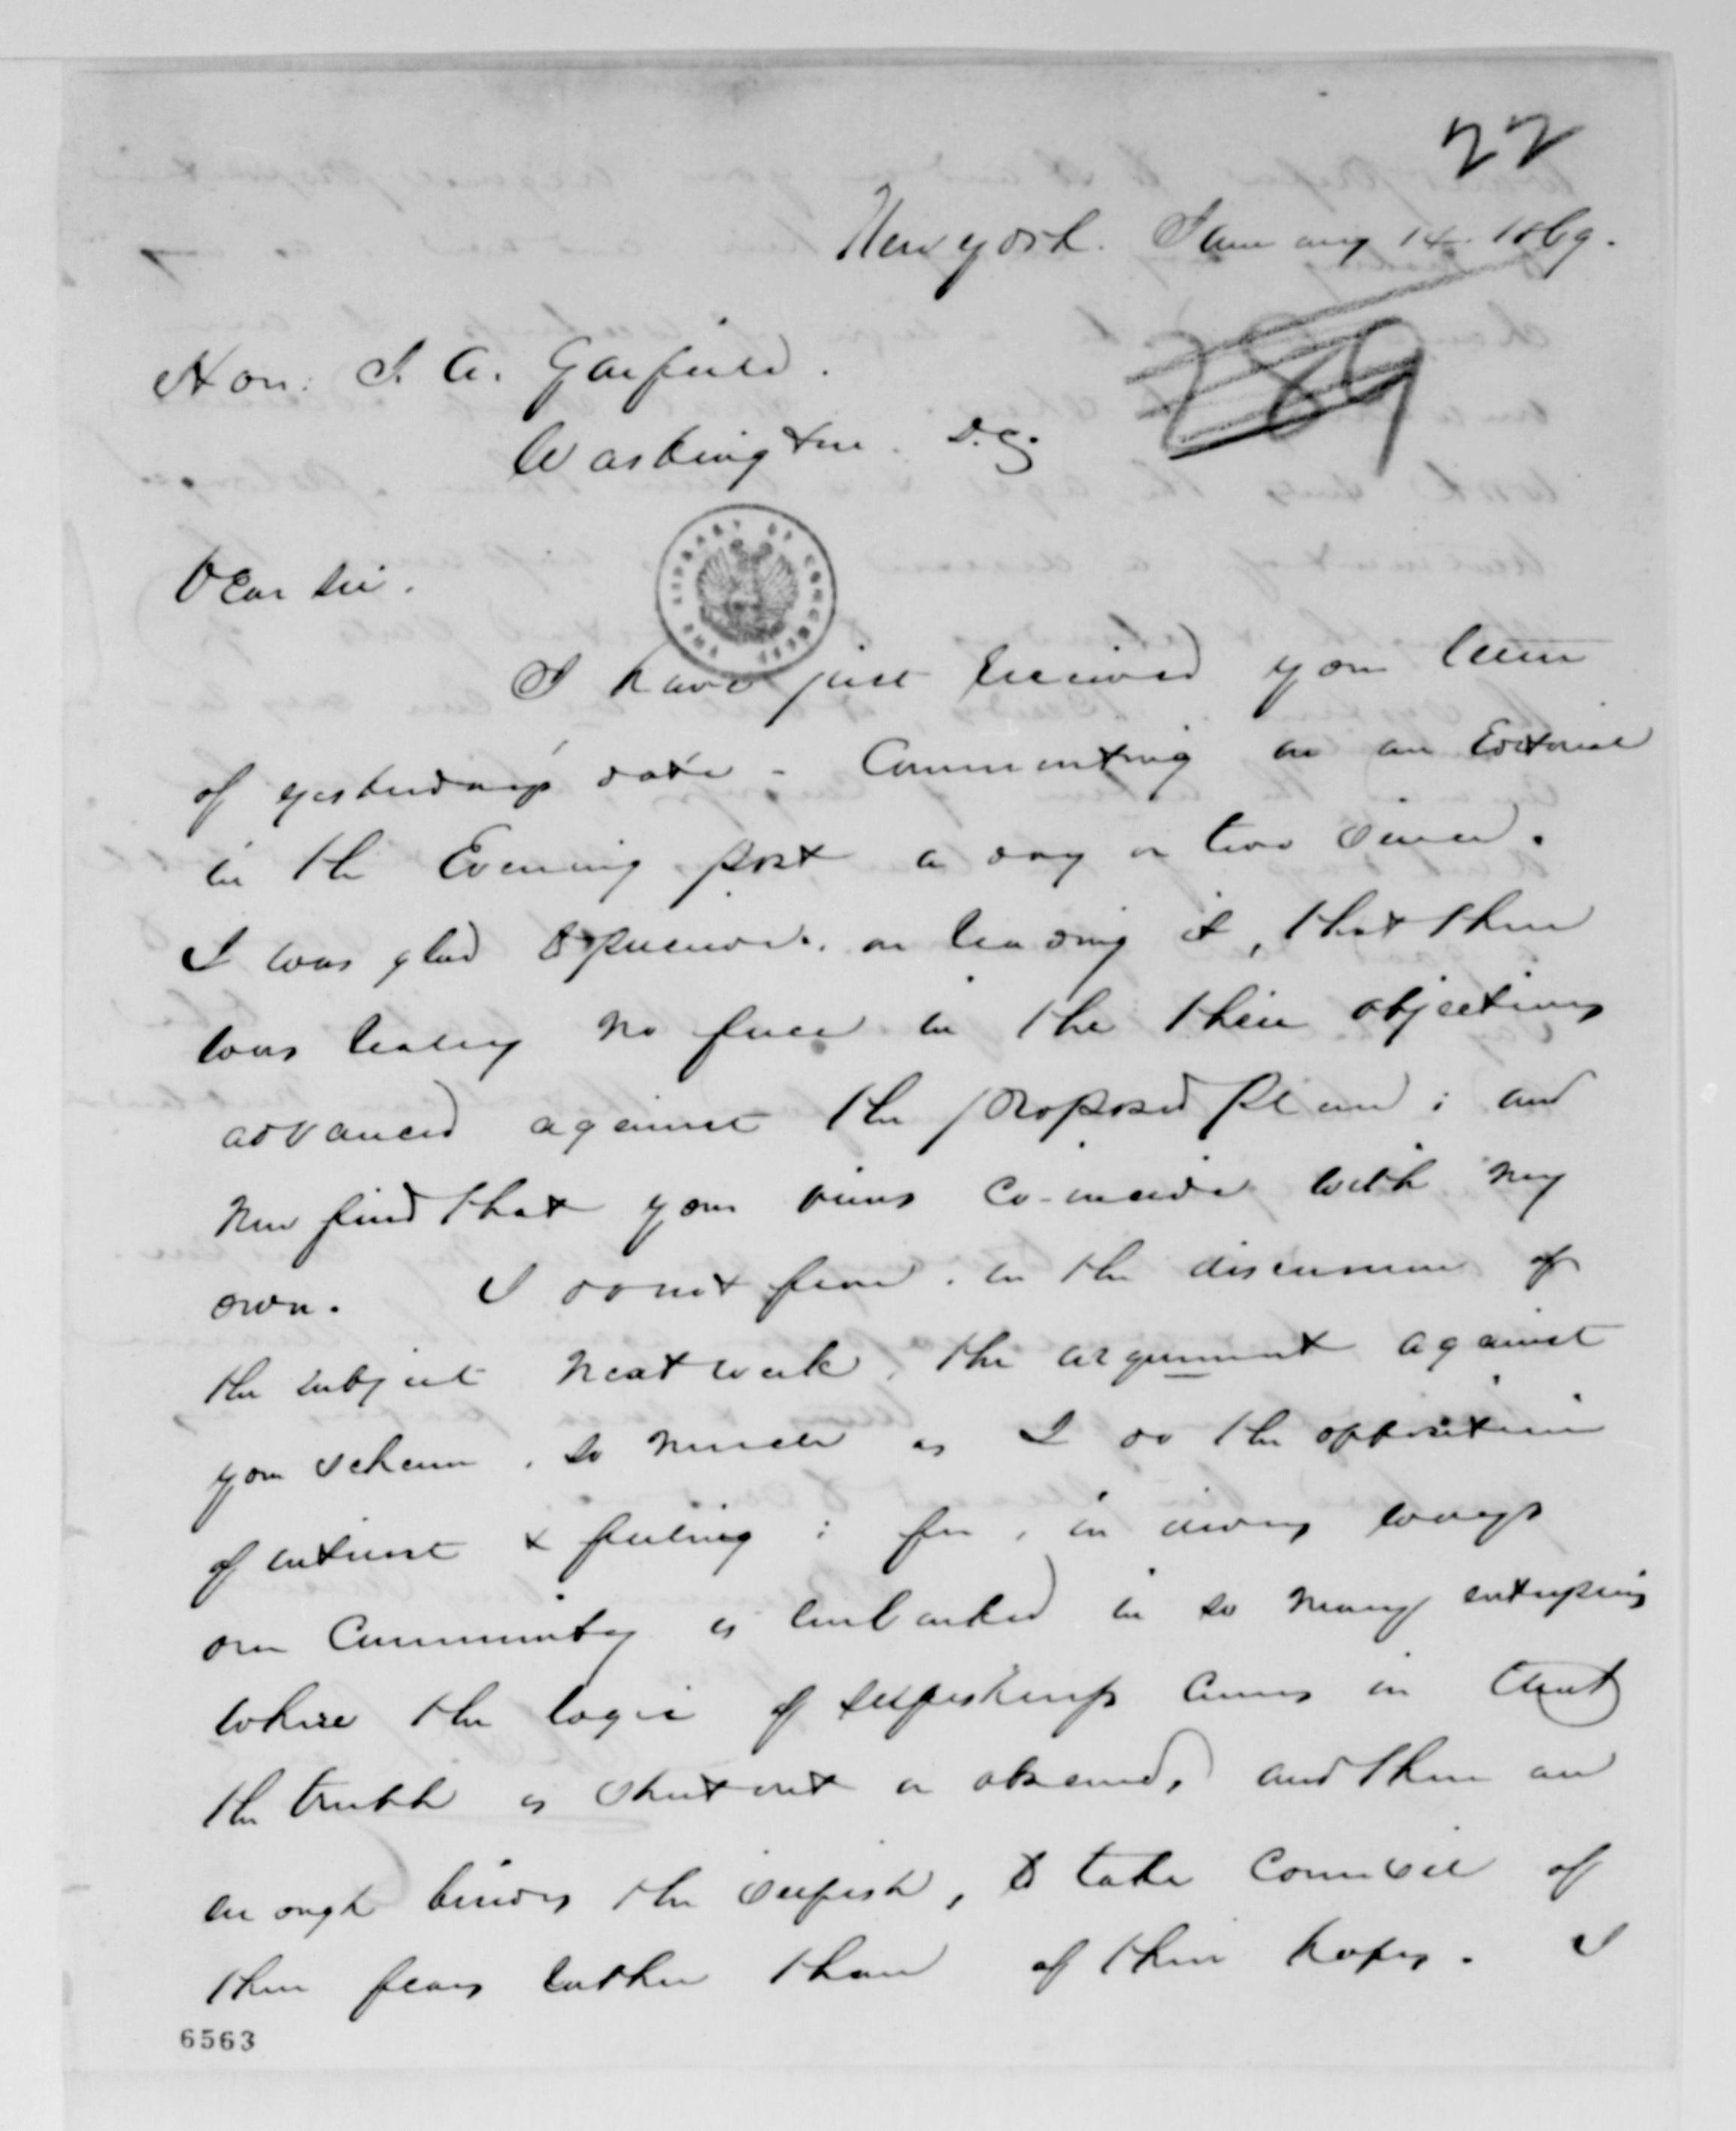 22
New York. January 14. 1869.
289
Hon: J. A. Garfield.
Washington. D.C.
THE LIBRARY OF CONGRESS
Dear Sir.
I have just received your letter
of yesterday's date - Commenting on an Editorial
in the Evening post a day or two since.
I was glad to perceive, on reading it, that there
was really no force in the their objections
advanced against the proposed plan; and
now find that your views co-incide with my
own. I do not fear, in the discussion of
the subject next week, the argument against
your scheme, so much as I do the opposition
of interest & feeling: for, in many ways
our Community is embarked in so many enterprises
where the logic of selfishness comes in that
the truth is shut out or obscured, and there are
enough besides the selfish, to take Counsel of
their fears rather than of their hopes. I
6563